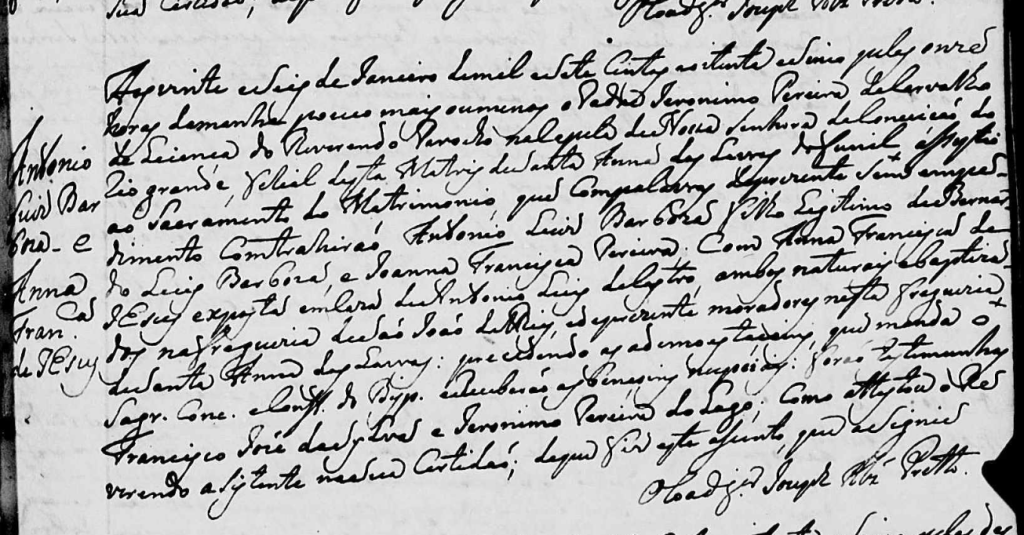 O Coadj.or Joseph Roiz Pretto.
Antonio
Luis Bar
boza - e
Anna
Fran.ca
de JEsus
Aos vinte e Seis de Janeiro de mil e Sete Centos e Setenta e Sinco pelas onze
horas da manha pouco mais ou menos o Padre Jeronimo Pereira de Carvalho
de Licença do Reverendo Parocho na Capela de Nossa Senhora da Conceicão do
Rio grande filial desta Matris de Santa Anna das Lavras do Funil, assystio
ao Sacramento do Matrimonio que Com palavras de prezente Sem empe-
dimento Contrahiraó Antonio Luis Barboza filho Legitimo de Bernar-
do Luis Barboza, e Joanna Francisca Pereira; Com Anna Francisca de
JEsus exposta em Caza de Antonio Luis de Castro, ambos naturais e baptiza-
dos na freguezia de São Joaó del Rei, e de prezente moradores nesta freguezia
de Santa Anna das Lavras: precedendo as admoestacois, que manda o
Sagr. Conc. e Const. do Bisp. e receberaó as bençois nupciais: foraó testemunhas
Francisco José da Sylva e Jeronimo Pereira do Lago, Como attestou o Re-
verendo assistente na Sua Certidaó; de que fis este assento, que assignei
O Coadj.or Joseph Roiz Pretto.